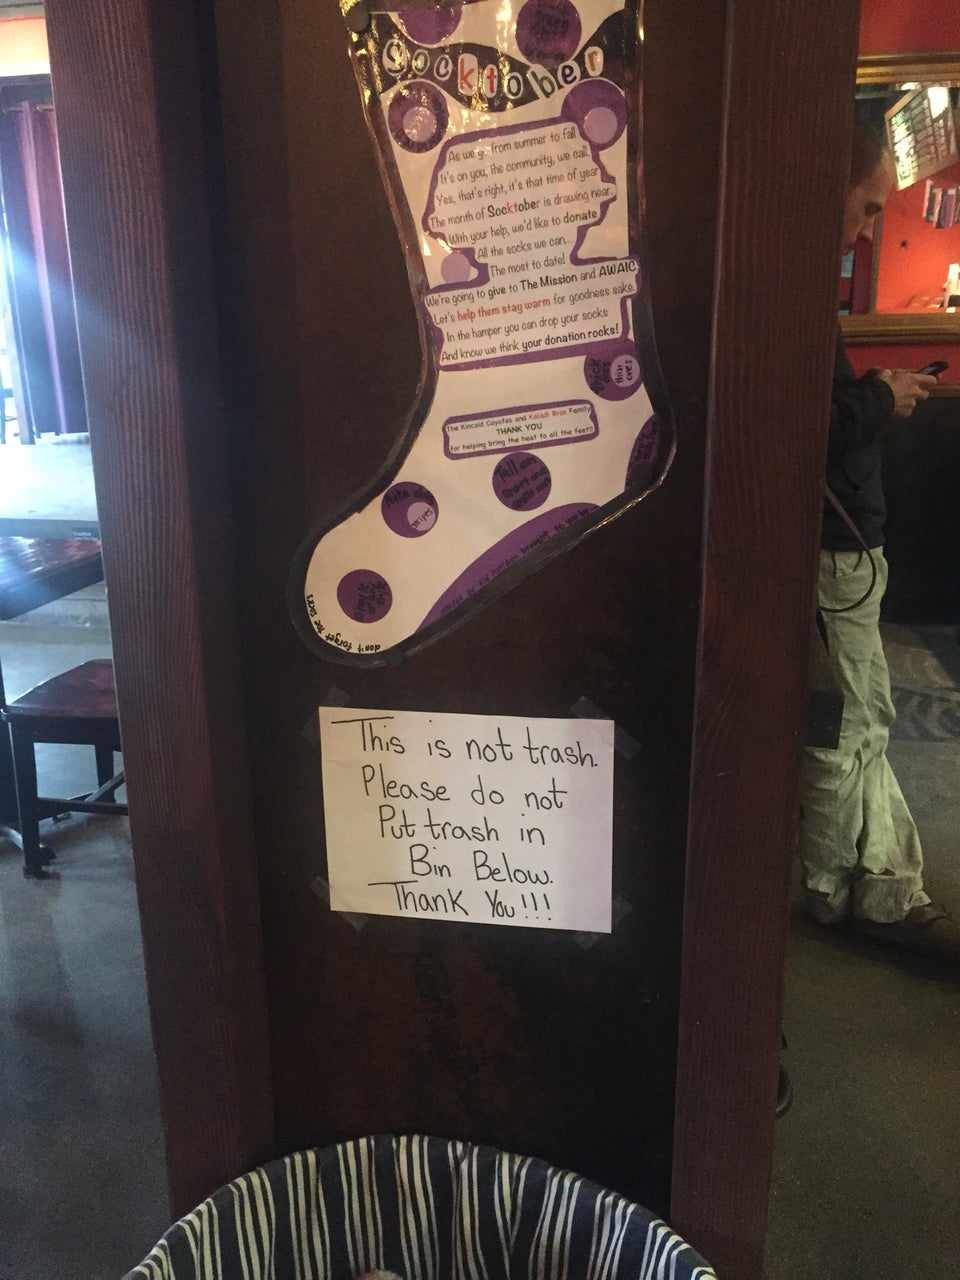 Socktober
As we go from summer to fall
It's on you, the community, we call.
Yes, that's right, it's that time of year
The month of Socktober is drawing near.
With your help, we'd like to donate
All the socks we can...
The most to date!
We're going to give to The Mission and AWAIC
Let's help them stay warm for goodness sake.
In the hamper you can drop your socks
And know we think your donation rocks!
thick ones
thin ones
The Kincaid Coyotes and Kaladi Bros Family
THANK YOU
for helping bring the heat to all the feet!!
Tall ones
Short ones
stripes
brought to you by
don't forget the socks
This is not trash.
Please do not
Put trash in
Bin Below.
Thank You!!!